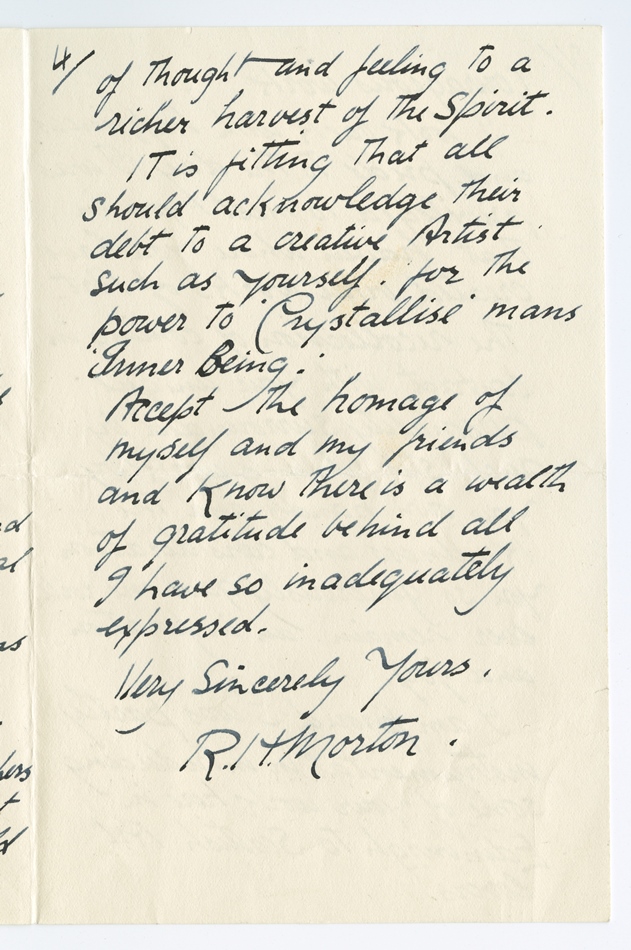 4/
of thought and feeling to a
richer harvest of the Spirit.
It is fitting that all
should acknowledge their
debt to a creative Artist
such as yourself. for the
power to 'Crystallise' mans
'Inner Being.'
Accept the homage of
myself and my friends
and know there is a wealth
of gratitude behind all
I have so inadequately
expressed.
Very Sincerely Yours.
R.H. Morton.